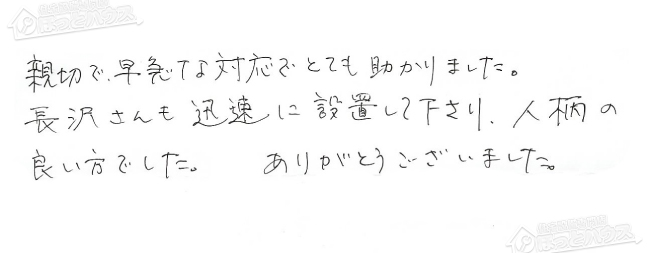 親切で、早急な対応でとても助かりました。
長沢さんも迅速に設置して下さり、人柄の
良い方でした。　ありがとうございました。